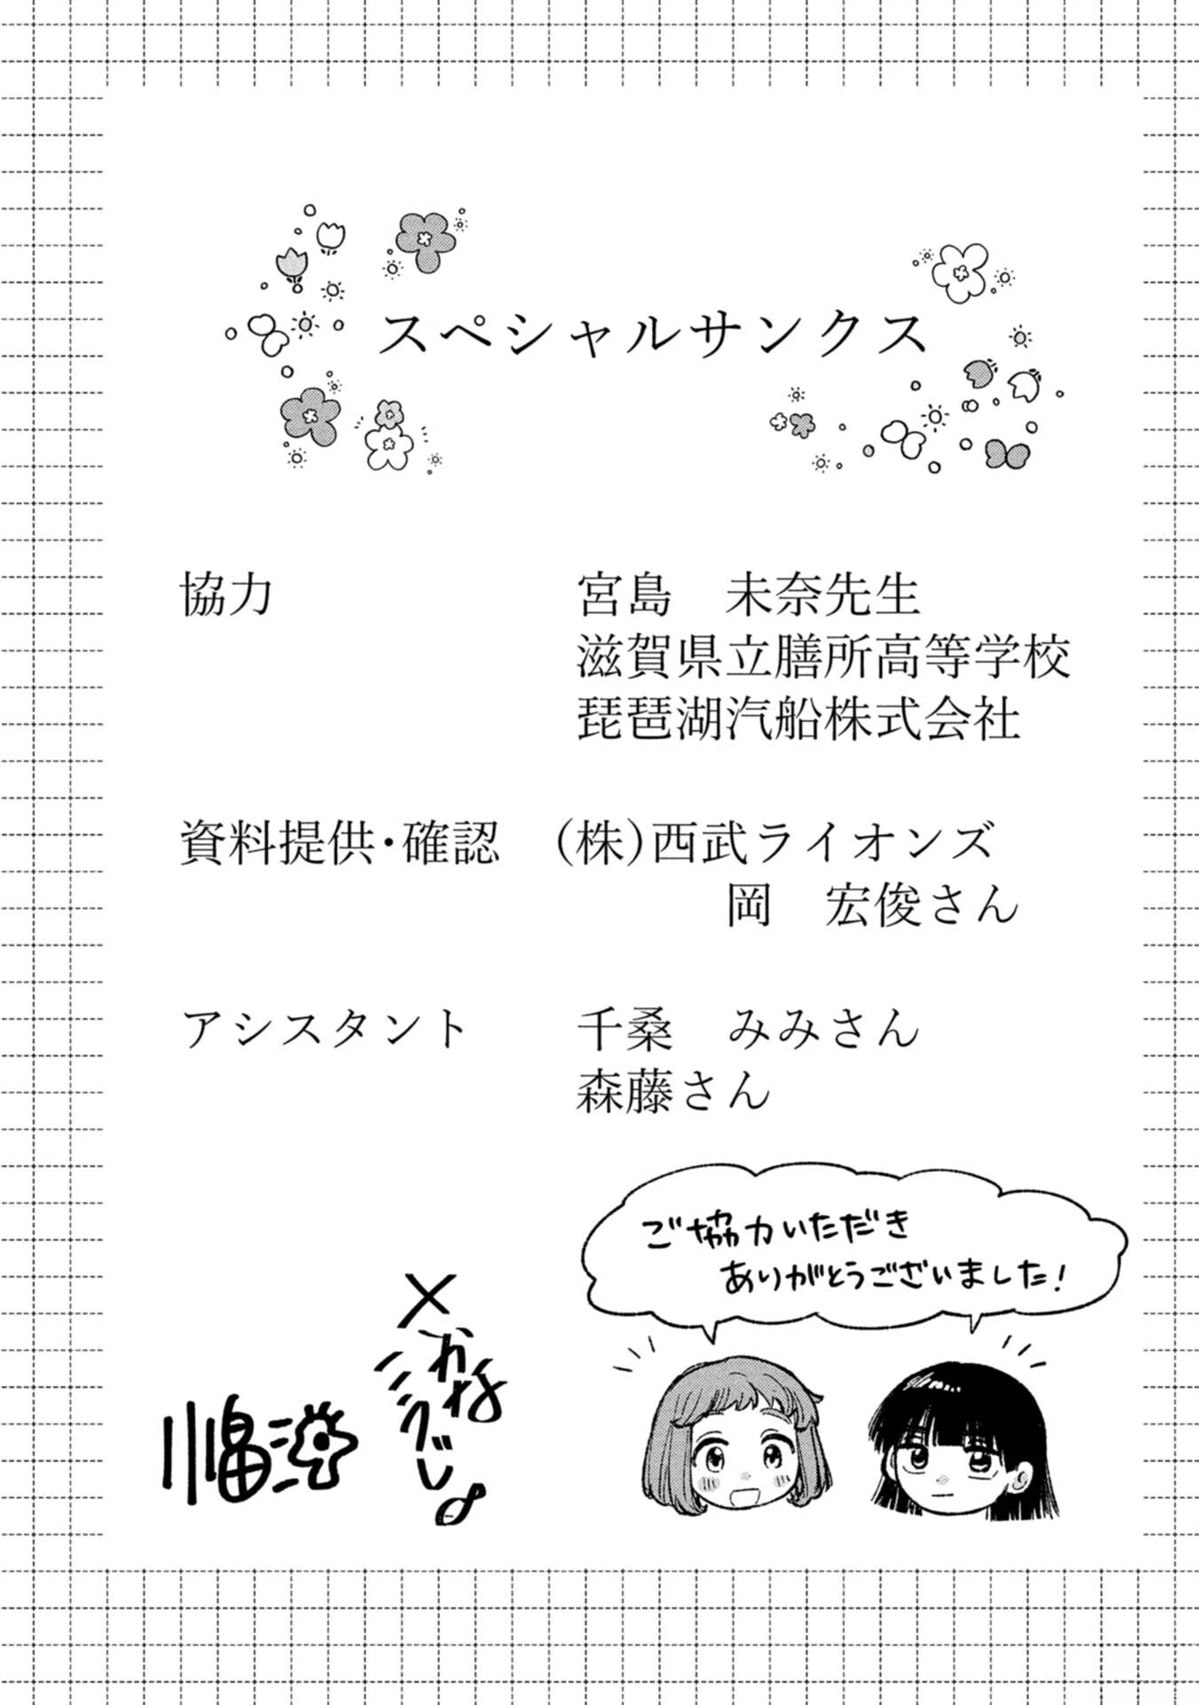 スペシャルサンクス
協力　宮島　未奈先生
滋賀県立膳所高等学校
琵琶湖汽船株式会社
資料提供・確認　(株)西武ライオンズ
岡　宏俊さん
アシスタント　千桑　みみさん
森藤さん
ご協力いただき
ありがとうございました!